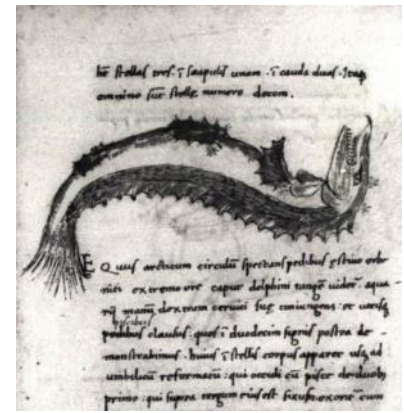 hē stellas tres. ī scapulis unam. ī cauda duas. Itaq
omnino sūt stelle numero decem.
E Quus arcticum circulū spectans pedibus estiuo orbe
niti extremo ore caput delphini tangē uidet̄. aqua
rij manū dextram ceruici suę coniungens: et utrisq
piscibus
pedibus clausus: quos ī duodecim signis postea de-
monstrabimus. huius ī stellis corpus apparet usq ad
umbilicū reformatū: qui occidit cū pisce
primo: qui supra tergum eius est fixus. exorit̄ cum